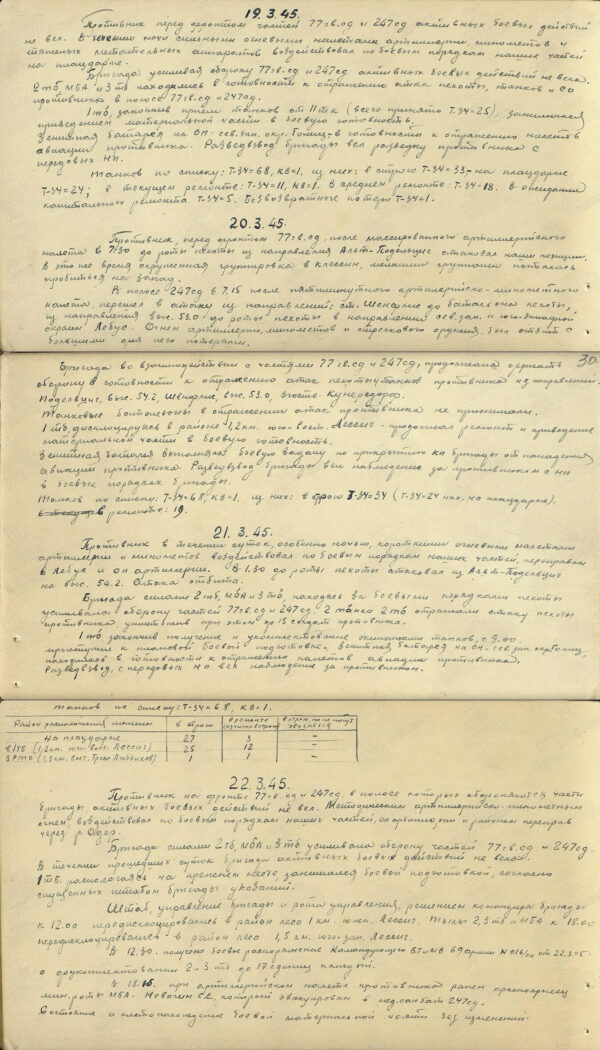 19.3.45.
Противник перед фронтом частей 77гв.сд и 247сд активных боевых действий
не вел. В течении ночи сильными огневыми налетами артиллерии, минометов и
тяжелых метательных аппаратов воздействовал по боевым порядкам наших частей
на плацдарме.
Бригада усиливая оборону 77гв.сд и 247сд активных боевых действий не вела.
2тб, МБА и 3тб находились в готовности к отражению атак пехоты, танков и СО
противника в полосе 77гв.сд и 247сд.
1тб, закончив прием танков от 11тк (всего принято Т-34=25), занимался
приведением материальной части в боевую готовность.
Зенитная батарея на ОП - сев.зап. окр. Гориц - в готовности к отражению налетов
авиации противника. Разведвзвод бригады вел разведку противника с
передовых НП.
Танков по списку: Т-34=68, КВ=1. из них: в строю Т-34=33 - на плацдарме
Т-34=24; в текущем ремонте: Т-34=11, КВ=1. В среднем ремонте: Т-34=18. В ожидании
капитального ремонта Т-34=5. Безвозвратные потери Т-34=1.
20.3.45.
Противник, перед фронтом 77гв.сд, после массированного артиллерийского
налета в 7.30 до роты пехоты из направления Альт-Подельциг атаковал наши позиции.
В это же время окруженная группировка в Клессин, мелкими группами пыталась
пробиться на запад.
В полосе 247сд в 7.15 после пятиминутного артиллерийско-минометного
налета, перешел в атаку из направлений; ст. Шенфлис до батальона пехоты,
из направления выс. 53.0 до роты пехоты в направлении сев.зап. и юго-западной
окраин Лебус. Огнем артиллерии, минометов и стрелкового оружия, был отбит с
большими для него потерями.
30
Бригада во взаимодействии с частями 77гв.сд и 247сд, продолжала держать
оборону в готовности к отражению атак пехоты и танков противника из направлении:
Подельциг, выс. 54.2, Шенфлис, выс. 53.0, Вюсте-Кунерсдорф.
Танковые батальоны в отражении атак противника не принимали.
1тб, дислоцируясь в районе 1,2км. юго-вост. Лессиг - продолжал ремонт и приведение
материальной части в боевую готовность.
Зенитная батарея выполняла боевую задачу по прикрытию КП бригады от нападения
авиации противника. Разведвзвод бригады вел наблюдение за противником с НП
в боевых порядках бригады.
Танков по списку: Т-34=68, КВ=1. из них: в строю Т-34=34 (Т-34=24 нах. на плацдарме).
в ремонте: 19.
21.3.45.
Противник в течении суток, особенно ночью, короткими огневыми налетами
артиллерии и минометов воздействовал по боевым порядкам наших частей, переправам
в Лебус и ОП артиллерии. В 1.30 до роты пехоты атаковал из Альт-Подельциг
на выс. 54.2. Атака отбита.
Бригада силами 2тб, МБА и 3тб, находясь за боевыми порядками пехоты
усиливала оборону частей 77гв.сд и 247сд. 2 танка 2тб отражали атаку пехоты
противника, уничтожив при этом до 15 солдат противника.
1тб закончив получение и укомплектование экипажами танков, с 9.00
приступил к плановой боевой подготовке. Зенитная батарея на ОП - сев.зап. окр. Гориц,
находилась в готовности к отражению налетов авиации противника.
Разведвзвод, с передовых НП вел наблюдение за противником.
Танков по списку: Т-34=68, КВ=1.
Район расположения машины | в строю | в ремонте | 
На плацдарме | 27 | 3 | –
в 1ТБ (1,2км. юго-вост. Лессиг) | 25 | 12 | –
| 1 | 1 | –
22.3.45.
Противник на фронте 77гв.сд и 247сд. в полосе которых обороняются части
бригады активных боевых действий не вел. Методическим артиллерийско-минометным
огнем воздействовал по боевым порядкам наших частей, ОП артиллерии и районам переправ
через р. Одер.
Бригада силами 2тб, МБА и 3тб усиливала оборону частей 77гв.сд и 247сд.
В течении прошедших суток бригада активных боевых действий не вела.
1тб. располагаясь на прежнем месте занимался боевой подготовкой, согласно
спущенных штабом бригады указаний.
Штаб, управление бригады и рота управления, решением командира бригады
к 12.00 передислоцировались в район леса 1км. южн. Лессиг. Тылы 2, 3тб и МБА к 18.00
передислоцировались в район леса 1,5км. юго-зап. Лессиг.
В 12.30. получено боевое распоряжение Командующего БТ и МВ 69 армии от 22.3.45.
о доукомплектовании 2 и 3тб до 17 единиц каждый.
В 18.15. при артиллерийском налете противника ранен красноармеец
мин. роты МБА - С.Е., который эвакуирован в медсанбат 247сд.
Состояние и местонахождение боевой материальной части без изменений.